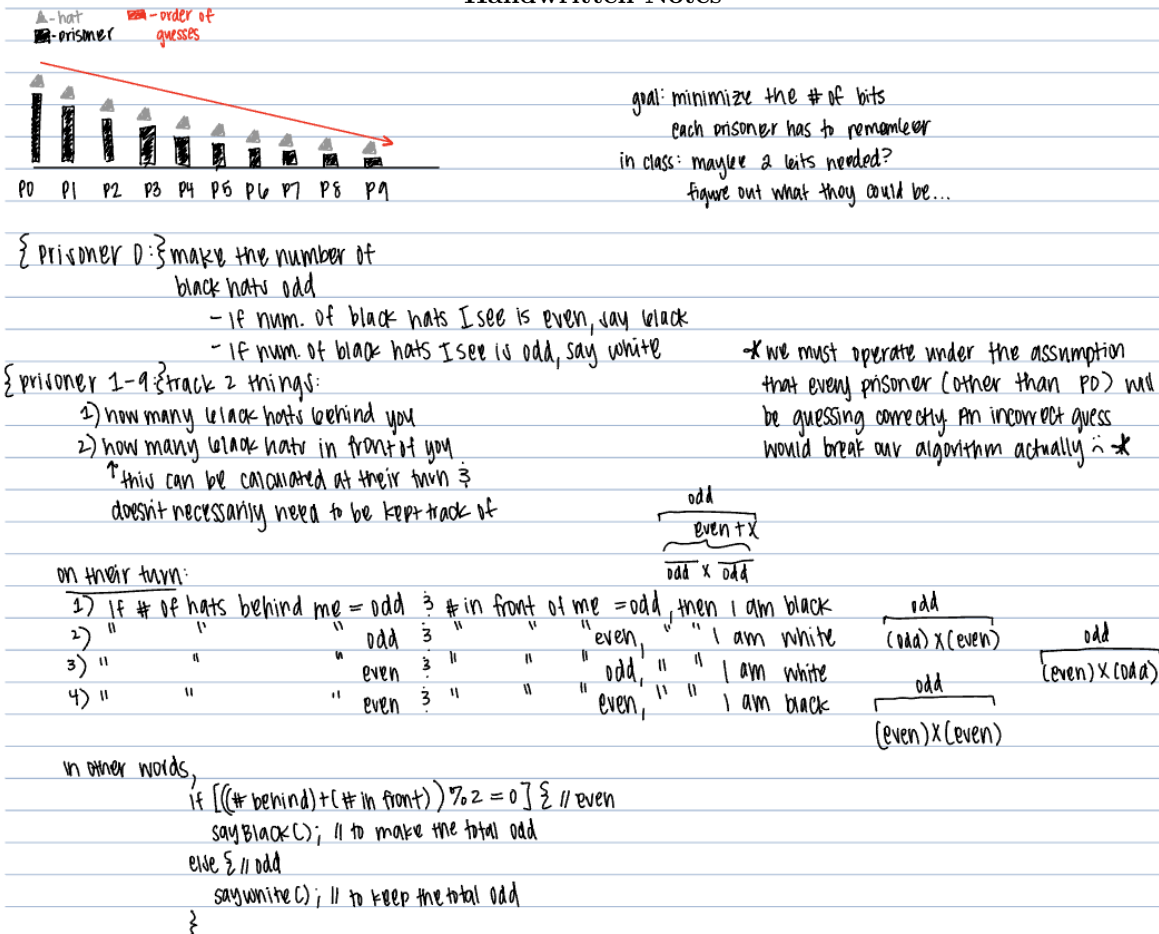 Handwritten Notes
▲-hat ■-order of
■-prisoner guesses
goal: minimize the # of bits
each prisoner has to remember
in class: maybe 2 bits needed?
figure out what they could be...
P0 P1 P2 P3 P4 P5 P6 P7 P8 P9
{prisoner 0:} make the number of
black hats odd
- if num. of black hats I see is even, say black
- if num. of black hats I see is odd, say white
{prisoner 1-9:} track 2 things:
1) how many black hats behind you
2) how many black hats in front of you
↑ this can be calculated at their turn &
doesn't necessarily need to be kept track of
* we must operate under the assumption
that every prisoner (other than P0) will
be guessing correctly. An incorrect guess
would break our algorithm actually :( *
odd
even + x
odd x odd
on their turn:
1) If # of hats behind me = odd & # in front of me = odd, then I am black
2) " " " odd & " " " even, " " I am white
3) " " " even & " " " odd, " " I am white
4) " " " even & " " " even, " " I am black
odd
(odd) x (even)
odd
(even) x (odd)
odd
(even) x (even)
in other words,
if [((# behind) + (# in front)) % 2 = 0] { // even
sayBlack(); // to make the total odd
else { // odd
saywhite(); // to keep the total odd
}